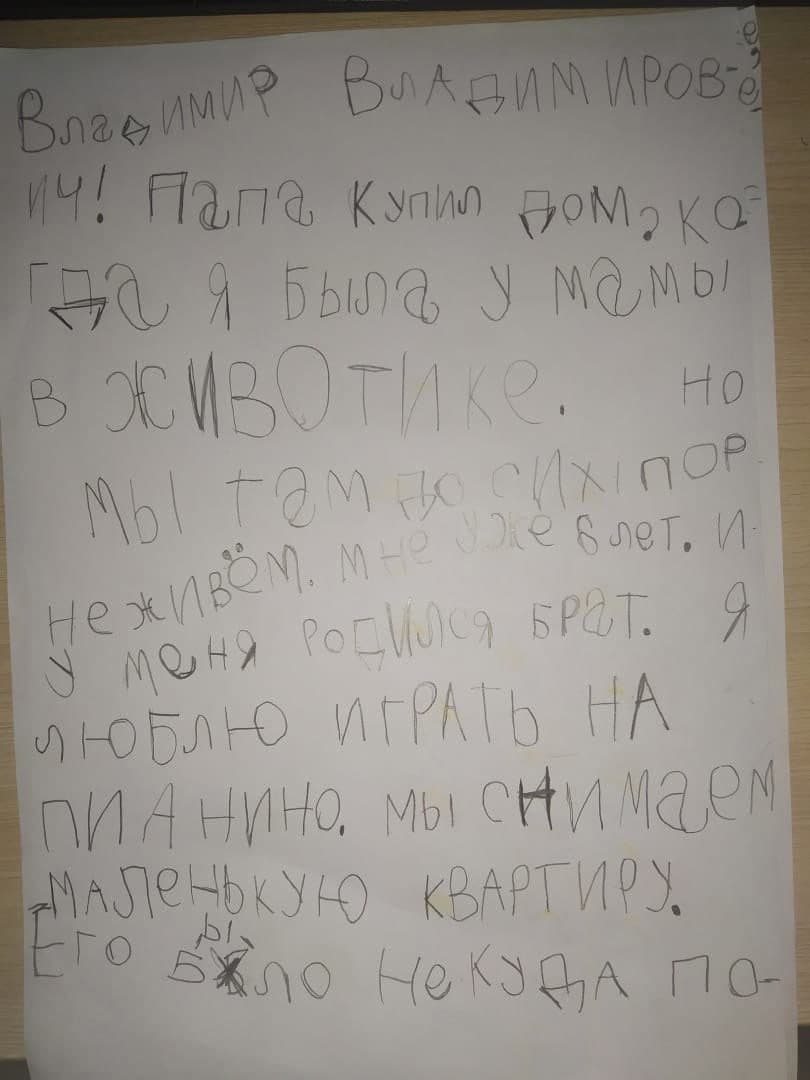 Владимир Владимиров-
ич! Папа купил дом, ко-
гда я была у мамы
в животике. но
мы там до сих пор
не живём. мне уже 6 лет. и
у меня родился брат. я
люблю играть на
пианино. мы снимаем
маленькую квартиру.
Его было некуда по-